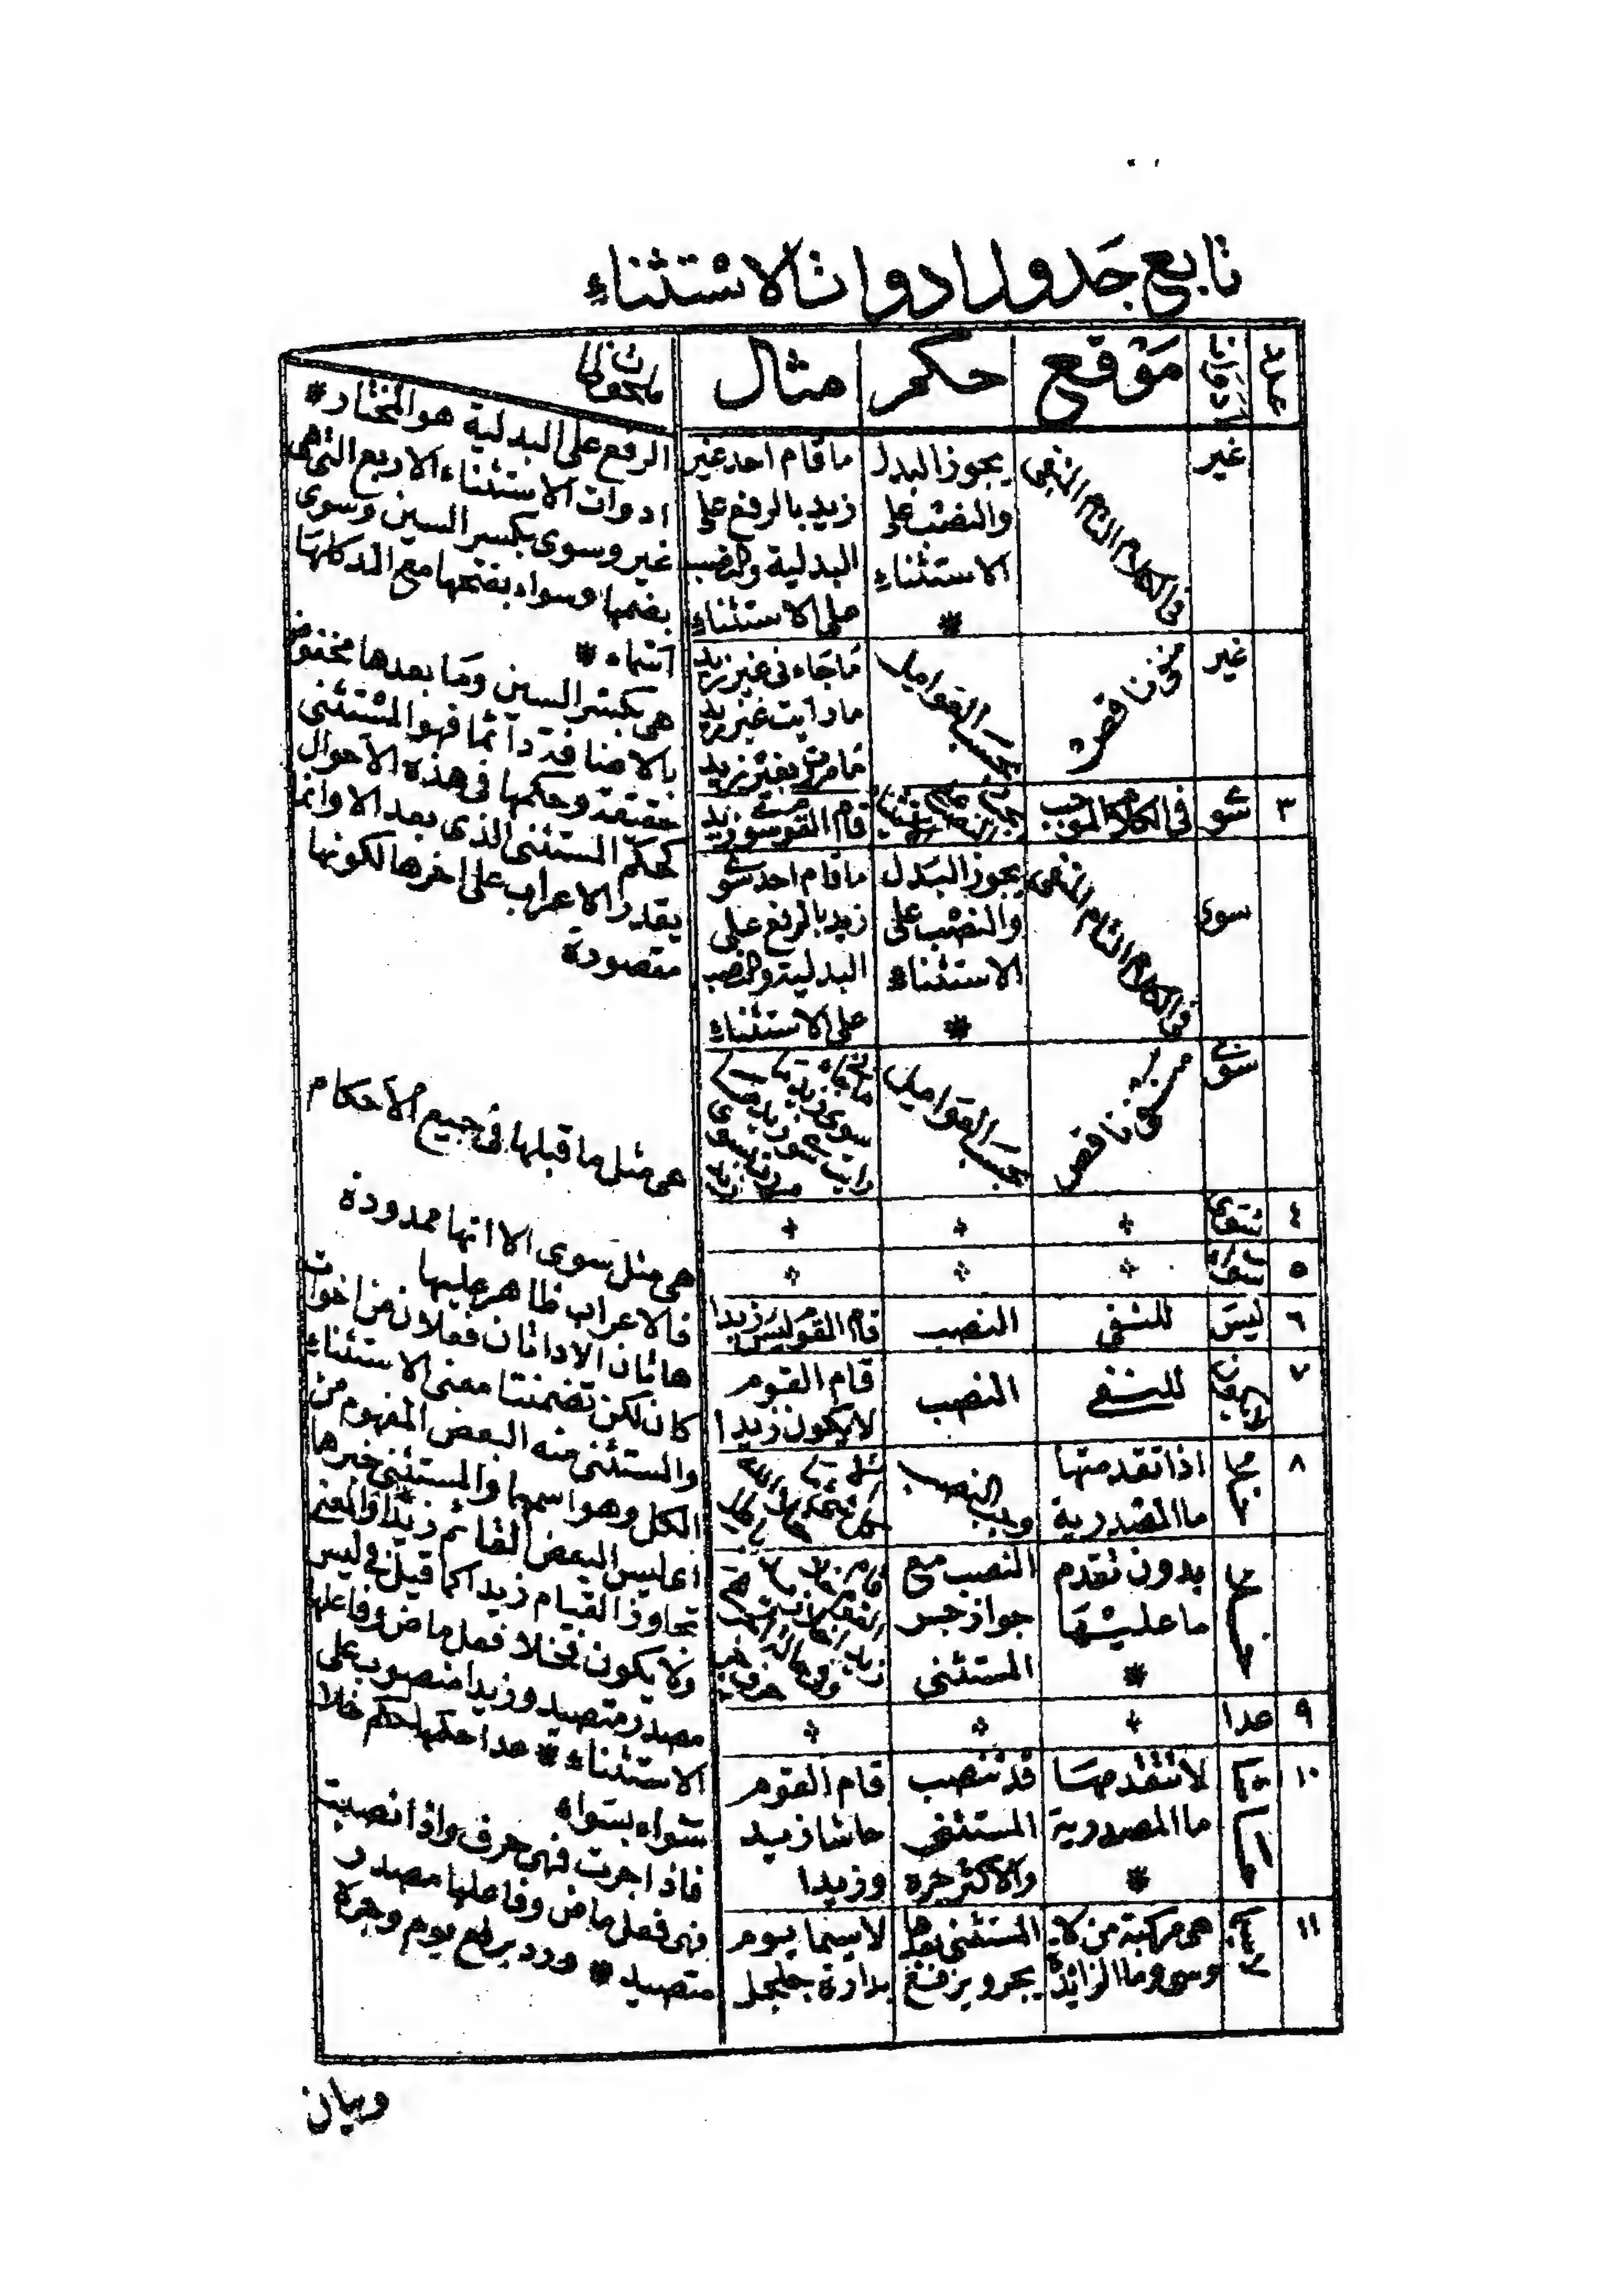 تابع جدول ادوات الاستثناء
عدد
ادوات
موقع
حكم
مثال
ملحوظات
غير
فى الكلام التام المنفى
يجوز البدل
والنصب على
الاستثناء
*
ما قام احد غير
زيد بالرفع على
البدلية والنصب
على الاستثناء
غير
ناقص
بحسب العوامل
ما جاءنى غير زيد
ما رايت غير زيد
ما مررت بغير زيد
٣
سوى
فى الكلام الموجب
قام القوم سوى زيد
سوى
فى الكلام التام المنفى
يجوز البدل
والنصب على
الاستثناء
*
ما قام احد سوى
زيد بالرفع على
البدلية والنصب
على الاستثناء
سوى
ناقص
بحسب العوامل
٤
سوى
٥
سواء
٦
ليس
للنفى
النصب
قام القوم ليس زيدا
٧
لا يكون
للنفى
النصب
قام القوم
لا يكون زيدا
٨
ما خلا
اذا تقدمتها
ما المصدرية
وجب النصب
خلا
بدون تقدم
ما عليها
*
النصب مع
جواز جر
المستثنى
٩
عدا
١٠
حاشا
لا تتقدمها
ما المصدرية
*
قد تنصب
المستثنى
والاكثر جره
قام القوم
حاشا زيد
وزيدا
١١
لا سيما
هى مركبة من لا
وسى وما الزائدة
المستثنى بعدها
يجر ويرفع
لا سيما يوم
بدارة جلجل
الرفع على البدلية هو المختار *
ادوات الاستثناء الاربع التى هى
غير وسوى بكسر السين وسوى
بضمها وسواء بفتحها مع المد كلها
اسماء *
هى بكسر السين وما بعدها مخفوض
بالاضافة دائما فهو المستثنى
حقيقة وحكمها فى هذه الاحوال
كحكم المستثنى الذى بعد الا وانما
يقدر الاعراب على اخرها لكونها
مقصورة
هى مثل ما قبلها فى جميع الاحكام
هى مثل سوى الا انها ممدودة
فالاعراب ظاهر عليها
هاتان الاداتان فعلان من اخوات
كان لكن تضمنتا معنى الاستثناء
والمستثنى منه البعض المفهوم من
الكل وهو اسمها والمستثنى خبرها
اى ليس البعض القائم زيدا والمعنى
تجاوز القيام زيدا كما قيل فى ليس
ولا يكون فخلا فعل ماض وفاعلها
مصدر متصيد وزيدا منصوب على
الاستثناء * عدا حكمها حكم خلا
سواء بسواء
فاذا جرت فهى حرف واذا نصبت
فهى فعل ماض وفاعلها مصدر
متصيد * ورد برفع يوم وجره
وبيان